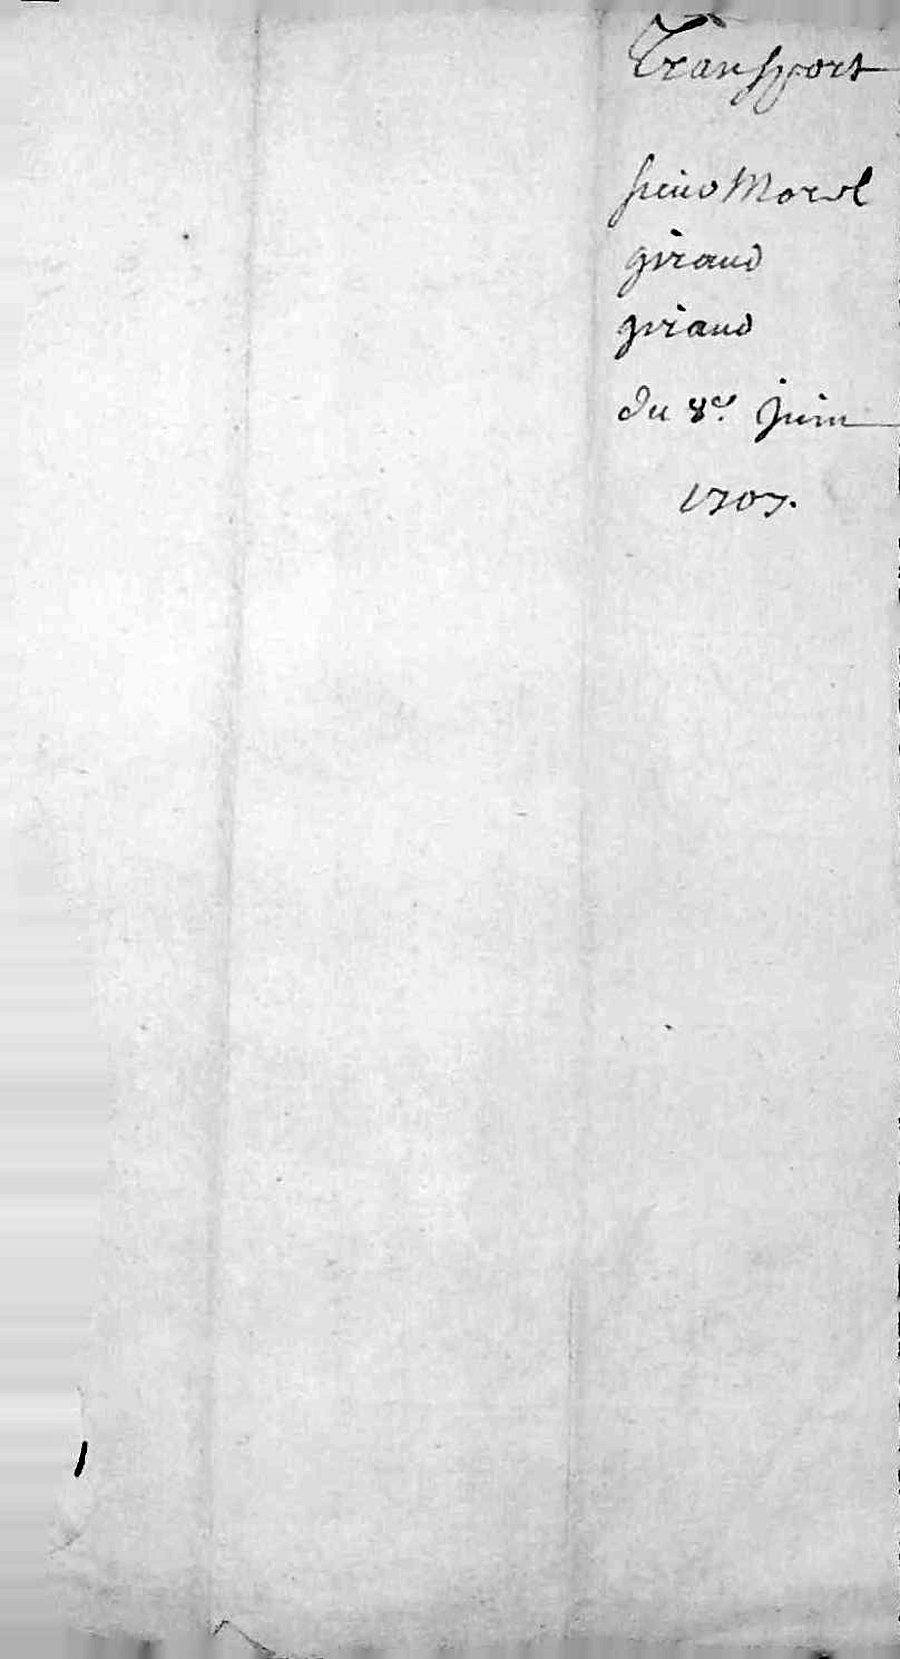 Transport
Morel
giraud
giraud
du 8e. juin
1707.